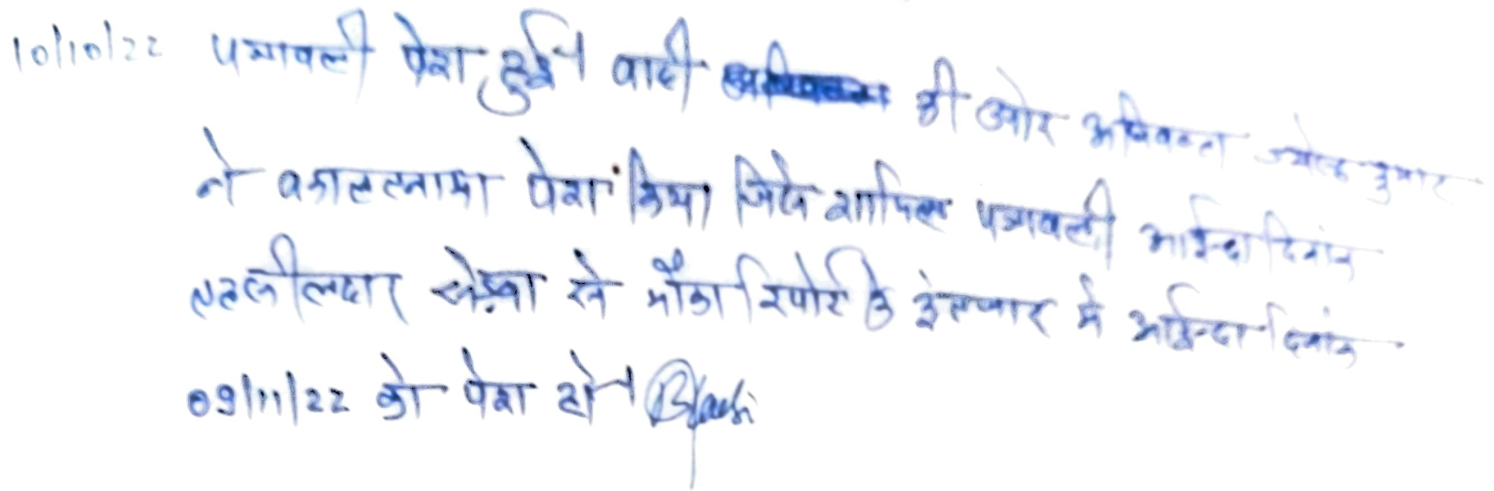 10/10/22 पत्रावली पेश हुई। वादी की ओर अधिवक्ता कुमार
ने वकालतनामा पेश किया जिसे शामिल पत्रावली आईन्दा दिनांक
तहसीलदार से मौका रिपोर्ट के इंतजार में आईन्दा दिनांक
09/11/22 को पेश हो।